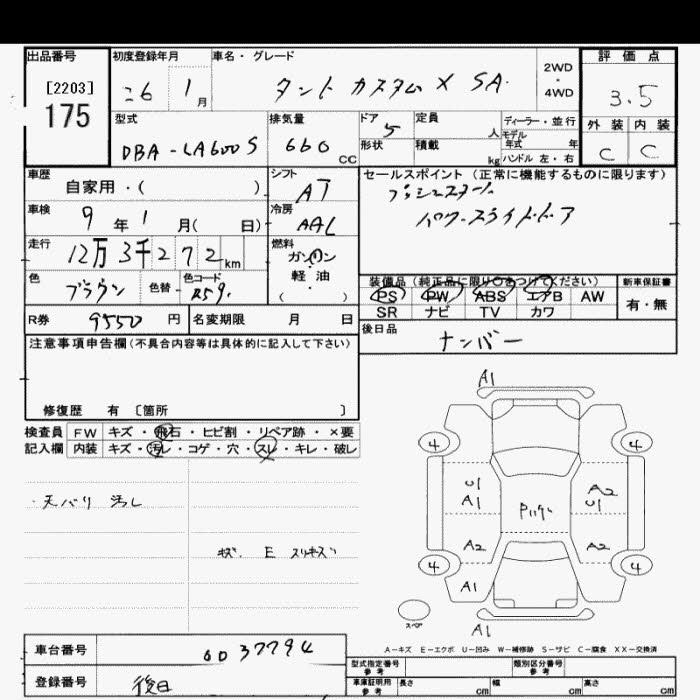 出品番号 初度登録年月 車名・グレード 2WD 評価点
[2203] 26 1月 タント カスタム X SA ・4WD 3.5
175 型式 排気量 ドア 定員 ディーラー・並行 外装 内装
DBA-LA600S 660 CC 5 人 モデル年式 年 C C
形状 積載 kg ハンドル 左・右
車歴 自家用・( ) シフト AT セールスポイント (正常に機能するものに限ります)
プッシュスタート
車検 9年1月( 日) 冷房 AAC パワースライドドア
走行 12万3千272km 燃料 ガソリン
軽油
( )
色 ブラウン 色替 色コード R59. 装備品 (純正品に限り○をつけてください) 新車保証書
PS PW ABS エアB AW 有・無
SR ナビ TV カワ
R券 9550円 名変期限 月 日 後日品 ナンバー
注意事項申告欄 (不具合内容等は具体的に記入して下さい)
修復歴 有 〔箇所 〕
検査員 FW キズ・飛石・ヒビ割・リペア跡・×要
記入欄 内装 キズ・汚レ・コゲ・穴・スレ・キレ・破レ
・天バリ 汚レ
キズ. E スリキズ
A1
4 4
U1 A2
A1 U1
A2 A2
4 4
A1
スペア
A1
A-キズ E-エクボ U-凹み W-補修跡 S-サビ C-腐食 XX-交換済
車台番号 0037794
登録番号 後日
型式指定番号 参考 類別区分番号 参考
車庫証明用 参考 長さ cm 幅 cm 高さ cm